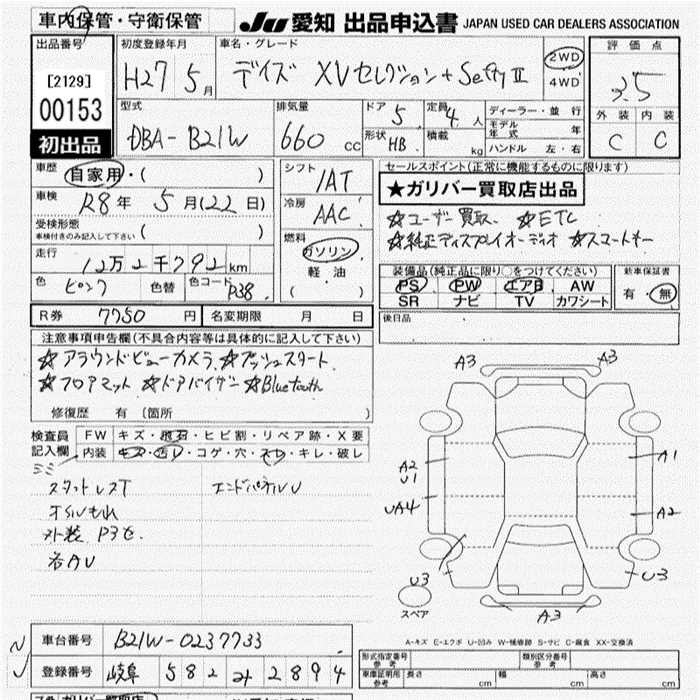 車内保管・守衛保管
JU 愛知 出品申込書 JAPAN USED CAR DEALERS ASSOCIATION
出品番号 [2129] 00153 初出品
初度登録年月 H27 5月
車名・グレード デイズ XVセレクション+Safty II
2WD 4WD
評価点 3.5
外装 C 内装 C
型式 DBA-B21W
排気量 660 cc
ドア 5 定員 4人
形状 HB 積載 kg
ディーラー・並行
モデル年式 年
ハンドル 左・右
車歴 自家用・( )
車検 R8年 5月(22日)
受検形態
車検付きのみ記入して下さい ( )
走行 12万2千792km
色 ピンク 色替 色コード P38
シフト IAT
冷房 AAC
燃料 ガソリン 軽油 ( )
セールスポイント(正常に機能するものに限ります)
★ガリバー買取店出品
☆ユーザー買取、 ☆ETC
☆純正ディスプレイオーディオ ☆スマートキー
装備品(純正品に限り○をつけてください)
PS PW エアB AW
SR ナビ TV カワシート
新車保証書 有・無
R券 7750円 名変期限 月 日
後日品
注意事項申告欄(不具合内容等は具体的に記入して下さい)
☆アラウンドビューカメラ ☆プッシュスタート
☆フロアマット ☆ドアバイザー ☆Bluetooth
修復歴 有 〔箇所 〕
検査員記入欄
FW キズ・飛石・ヒビ割・リペア跡・X要
内装 キズ・汚レ・コゲ・穴・スレ・キレ・破レ
スタットレスT エンドパネルU
オイルもれ
外装 P3セ.
各AU
A3 A3
A2 U1 A1
UA4 A2
U3 U3
スペア A3
A-キズ E-エクボ U-凹み W-補修跡 S-サビ C-腐食 XX-交換済
車台番号 B21W-0237733
登録番号 岐阜 582 2894
形式指定番号 参考 類別区分番号 参考
車庫証明用 参考 長さ cm 幅 cm 高さ cm
ガリバー買取店